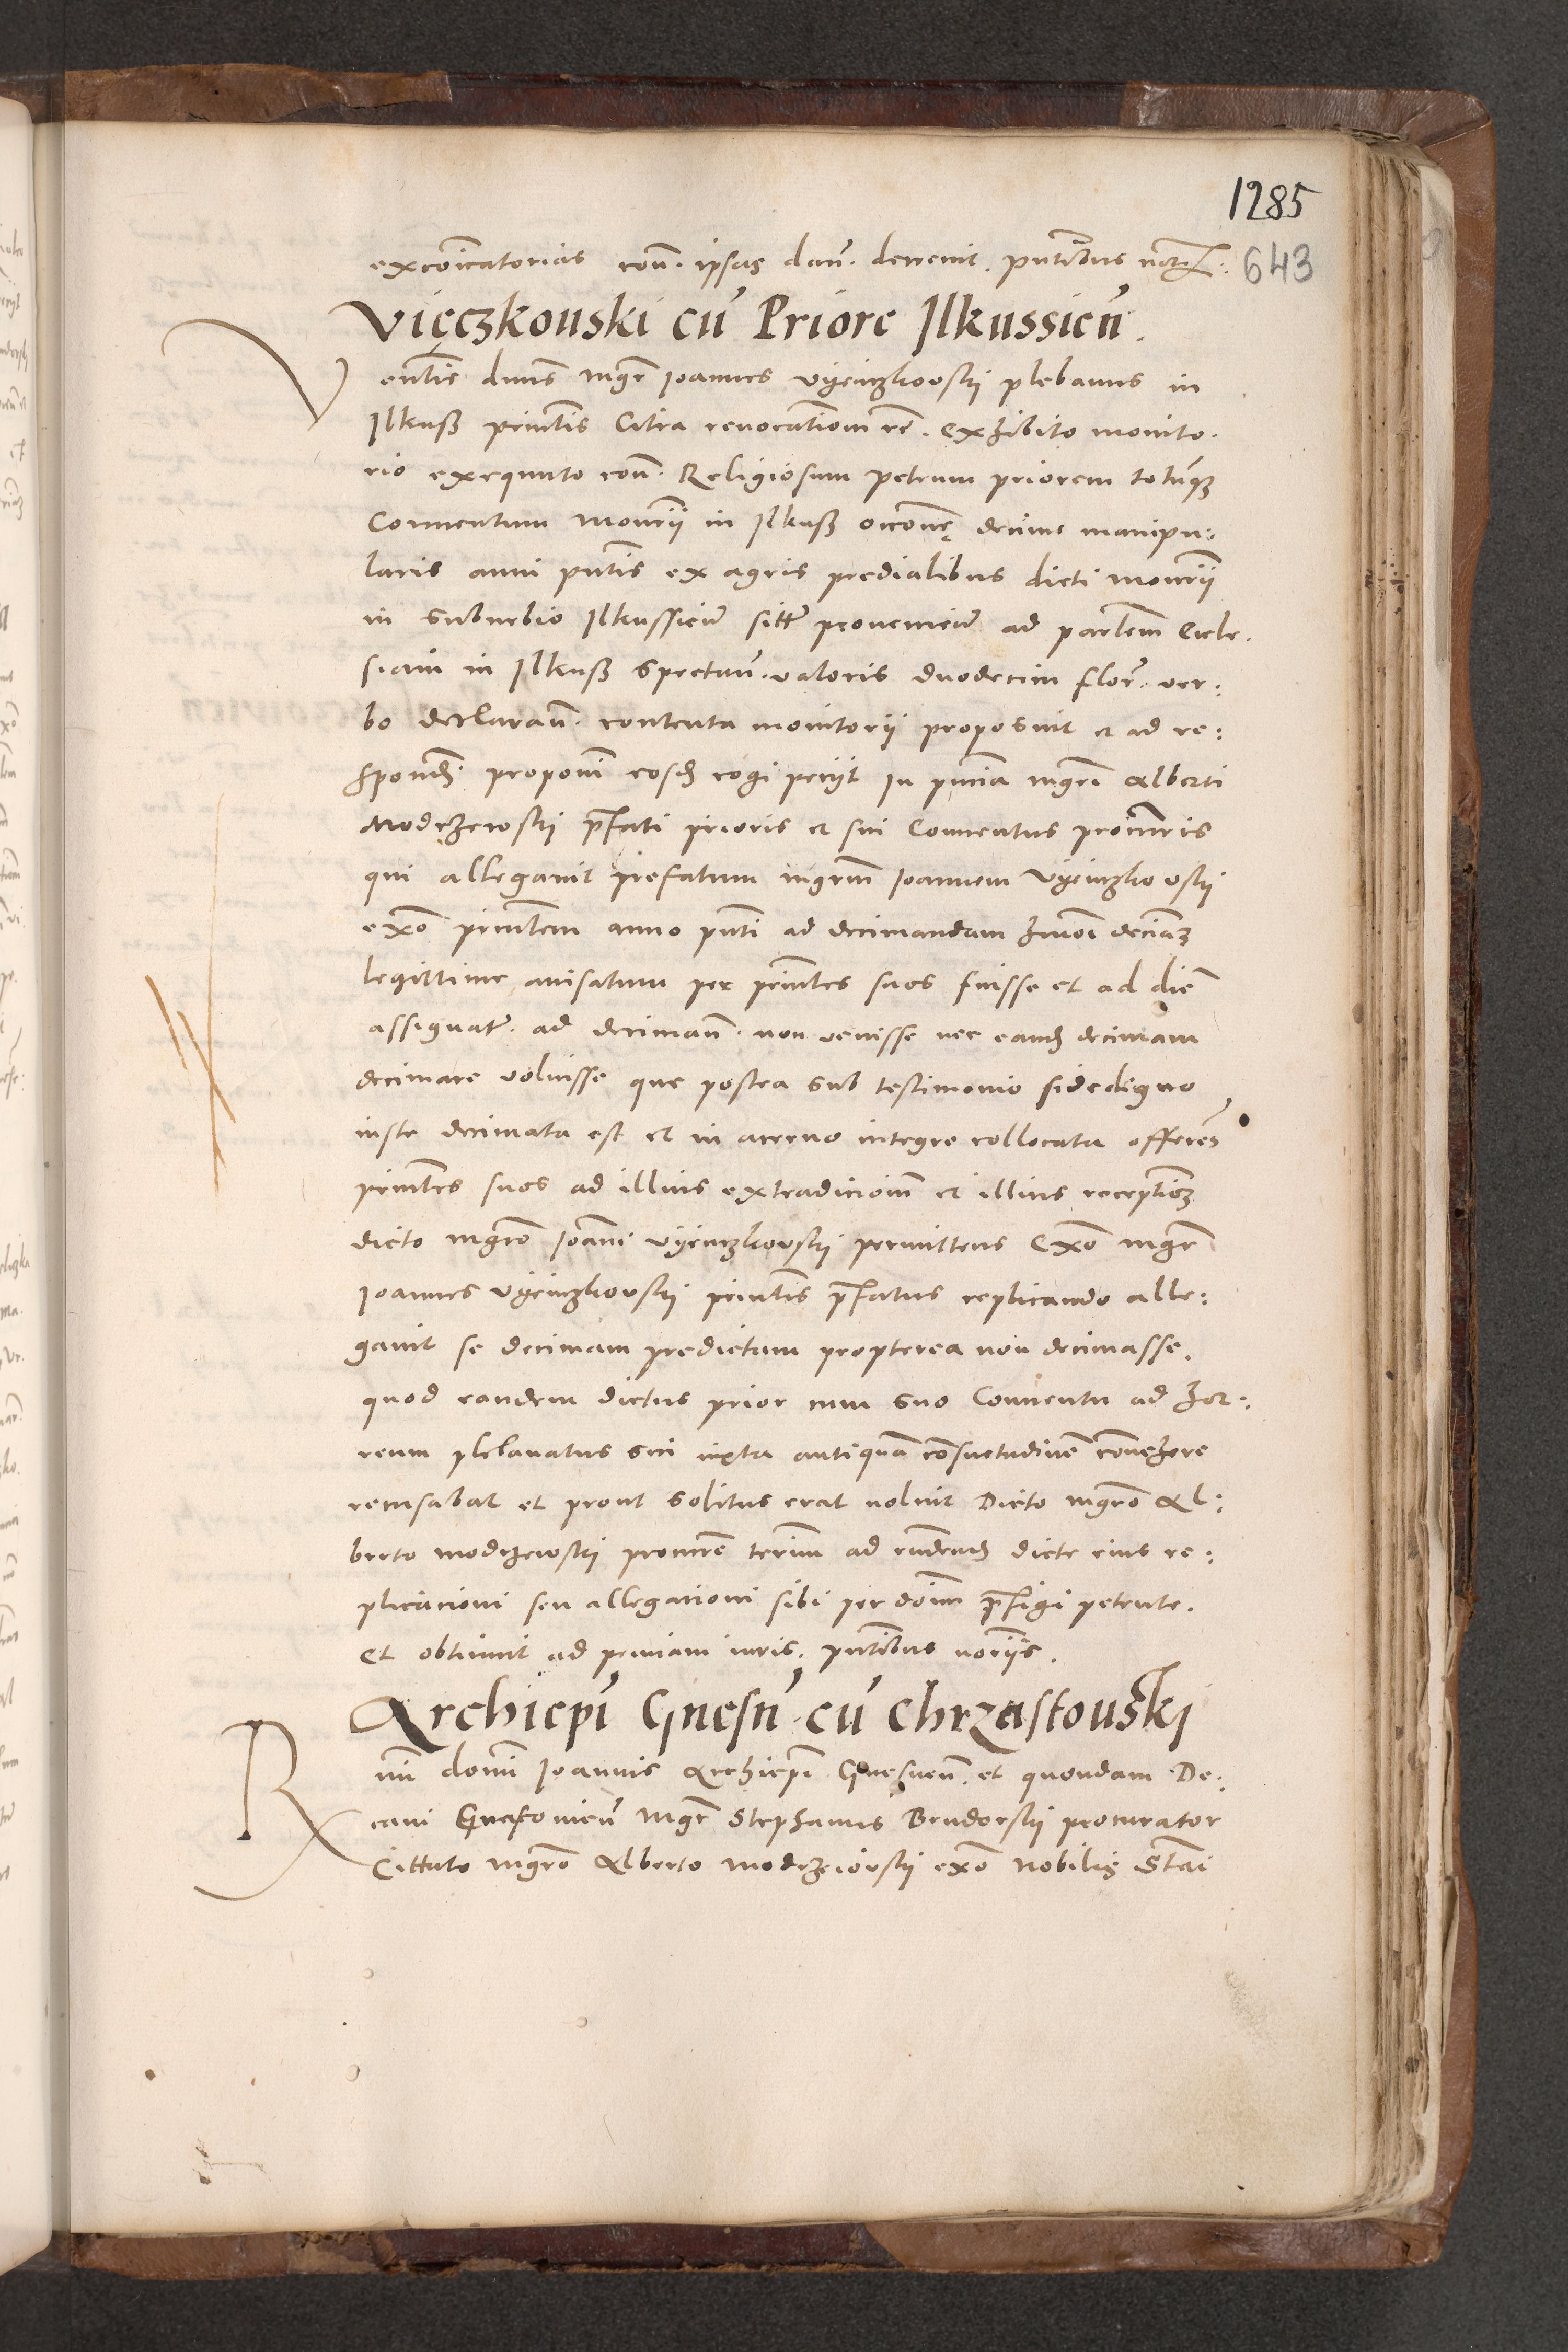 1285
excōicatorias cont̄. ipsas dan̄. decrevit. pn̄tibus not.
643
Vięczkouski cū Priore Ilkussień.
Ventīs dnūs mgr̄ Joannes Vyęnczkovskÿ plebanus in
Ilkusß prin̄tis Citra revocationem rē. Exhibito monito.
rio exequuto cont̄. Religiosum petrum priorem totumq3
Conventum Monrīj in Ilkusß occonę decime manipu:
laris anni pn̄tis ex agris predialibus dicti monrīj
in suburbio Ilkussień sitt̄ provenień ad parlem Eccle.
siam in Ilkusß spectan̄. valoris duodecim flor̄. ver:
bo declaran̄. contenta monitorij proposuit et ad re:
spond. proponī eosd cogi petijt In pn̄cia mgrī Alberti
Modrzewskÿ pr̄fati prioris et sui Conventus procur̄ris
qui allegavit prefatum mgrm̄ Joannem Vyęnczkovskÿ
exō prin̄tem anno pn̄ti ad decimandam hmōi deciam
legittime avisatum per prin̄tes suos fuisse et ad diē
assignat̄. ad deciman̄. non venisse nec eand decimam
decimare voluisse que postea sub testimonio fidedigno
iuste decimata est et in acervo integre collocata offereń
prin̄tes suos ad illius extradicioem̄ et illius receptiom̄
dicto mgrō Joāni Vyęnczkovskÿ permittens Exō mgr̄
Joannes Vyęnczkovskÿ prin̄tis pr̄fatus replicando alle:
gavit se decimam predictam propterea non decimasse.
quod eandem dictus prior cum suo Conventu ad hor:
reum plebanatus sui iuxta antiquā cōsuetudinē cōvehere
recusabat et prout solitus erat noluit Dicto mgrō Al:
berto modrzewskÿ procur̄re term̄ ad rn̄dend dicte eius re:
plicacioni seu allegacioni sibi per dom̄ pr̄figi petente.
Et obtinuit ad primam iuris. pn̄tibus norījs.
Archiepī Gnesń. cū Chrząstouski
Rmī domī Joannis Archiepī Gnesnen̄. et quondam De:
cani Gnesonień Mgr̄ Stephanus Brudovskÿ procurator
Cittato mgrō Alberto modrzeiovskÿ exō Nobilis Stāi